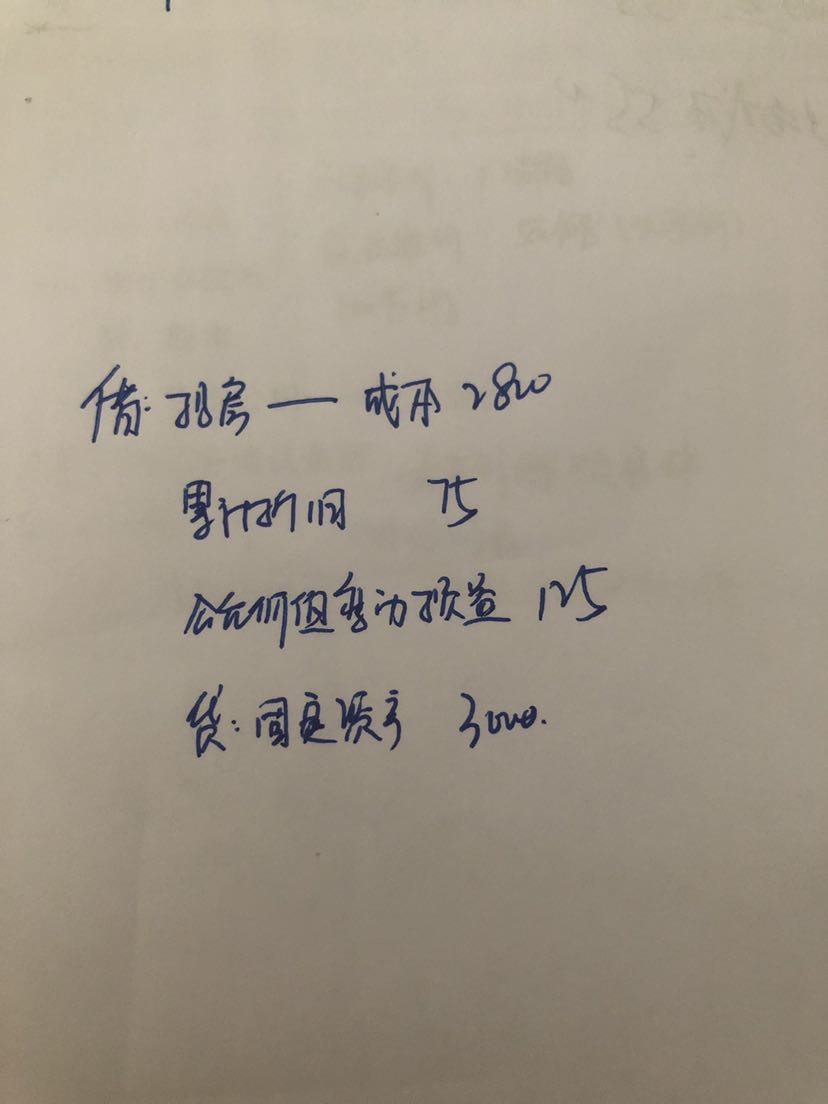 借:投房——成本 2800
累计折旧 75
公允价值变动损益 125
贷:固定资产 3000.